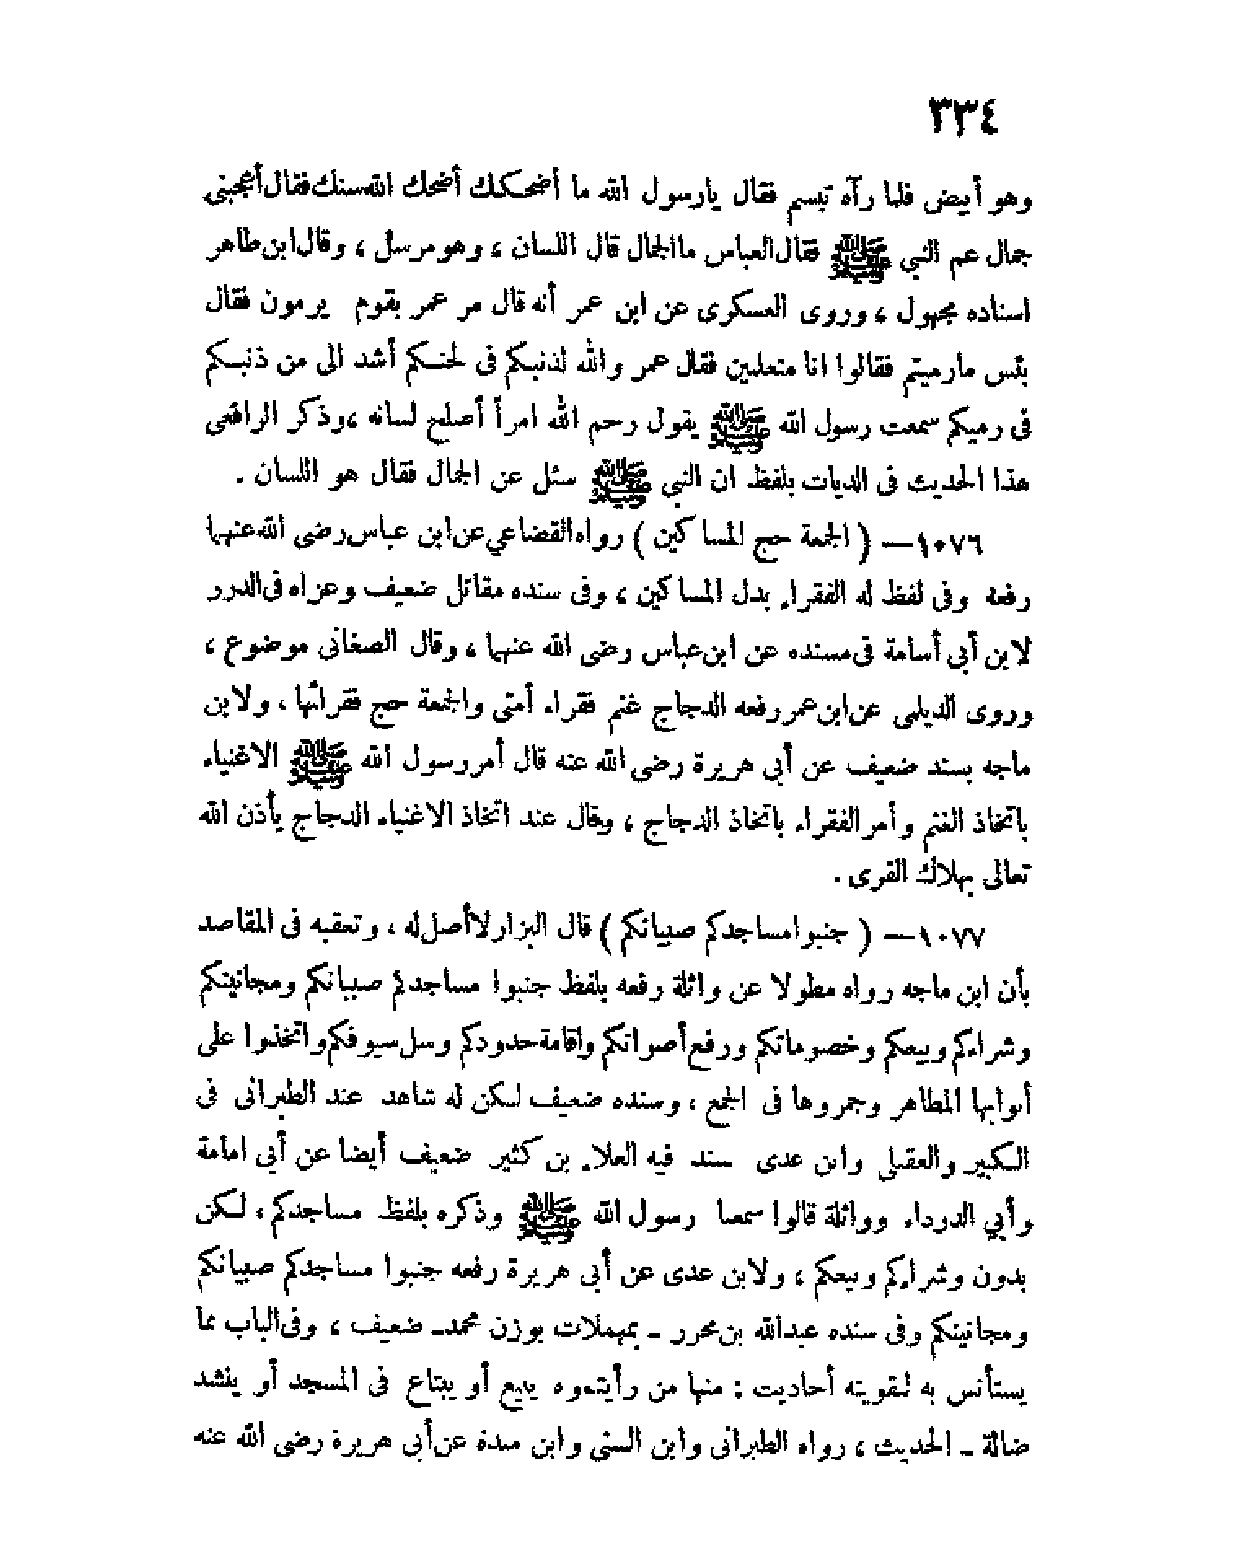 ٣٣٤
وهو أبيض فلما رآه تبسم فقال يارسول الله ما أضحكك أضحك الله سنك فقال أعجبني
جمال عم النبي ﷺ فقال العباس ما الجمال قال اللسان ، وهو مرسل ، وقال ابن طاهر
اسناده مجهول ، وروى العسكرى عن ابن عمر أنه قال مر عمر بقوم يرمون فقال
بئس مارميتم فقالوا انا متعلمين فقال عمر والله لذنبكم فى لحنكم أشد الى من ذنبكم
فى رميكم سمعت رسول الله ﷺ يقول رحم الله امرأ أصلح لسانه ، وذكر الرافعى
هذا الحديث فى الديات بلفظ ان النبي ﷺ سئل عن الجمال فقال هو اللسان .
١٠٧٦ — ( الجمعة حج المساكين ) رواه القضاعي عن ابن عباس رضى الله عنهما
رفعه وفى لفظ له الفقراء بدل المساكين ، وفى سنده مقاتل ضعيف وعزاه فى الدرر
لابن أبي أسامة فى مسنده عن ابن عباس رضى الله عنهما ، وقال الصغانى موضوع ،
وروى الديلمى عن ابن عمر رفعه الدجاج غنم فقراء أمتى والجمعة حج فقرائها ، ولابن
ماجه بسند ضعيف عن أبي هريرة رضى الله عنه قال أمر رسول الله ﷺ الاغنياء
باتخاذ الغنم وأمر الفقراء باتخاذ الدجاج ، وقال عند اتخاذ الاغنياء الدجاج يأذن الله
تعالى بهلاك القرى .
١٠٧٧ — ( جنبوا مساجدكم صبيانكم ) قال البزار لا أصل له ، وتعقبه فى المقاصد
بأن ابن ماجه رواه مطولا عن واثلة رفعه بلفظ جنبوا مساجدكم صبيانكم ومجانينكم
وشراءكم وبيعكم وخصوماتكم ورفع أصواتكم واقامة حدودكم وسل سيوفكم واتخذوا على
أبوابها المطاهر وجمروها فى الجمع ، وسنده ضعيف لكن له شاهد عند الطبرانى فى
الكبير والعقيلى وابن عدى بسند فيه العلاء بن كثير ضعيف أيضا عن أبي امامة
وأبي الدرداء وواثلة قالوا سمعنا رسول الله ﷺ وذكره بلفظ مساجدكم ، لكن
بدون وشراءكم وبيعكم ، ولابن عدى عن أبي هريرة رفعه جنبوا مساجدكم صبيانكم
ومجانينكم وفى سنده عبدالله بن محرر ـ بمهملات بوزن محمد ـ ضعيف ، وفى الباب مما
يستأنس به لتقويته أحاديث : منها من رأيتموه يبيع أو يبتاع فى المسجد أو ينشد
ضالة ـ الحديث ، رواه الطبرانى وابن السنى وابن مندة عن أبي هريرة رضى الله عنه